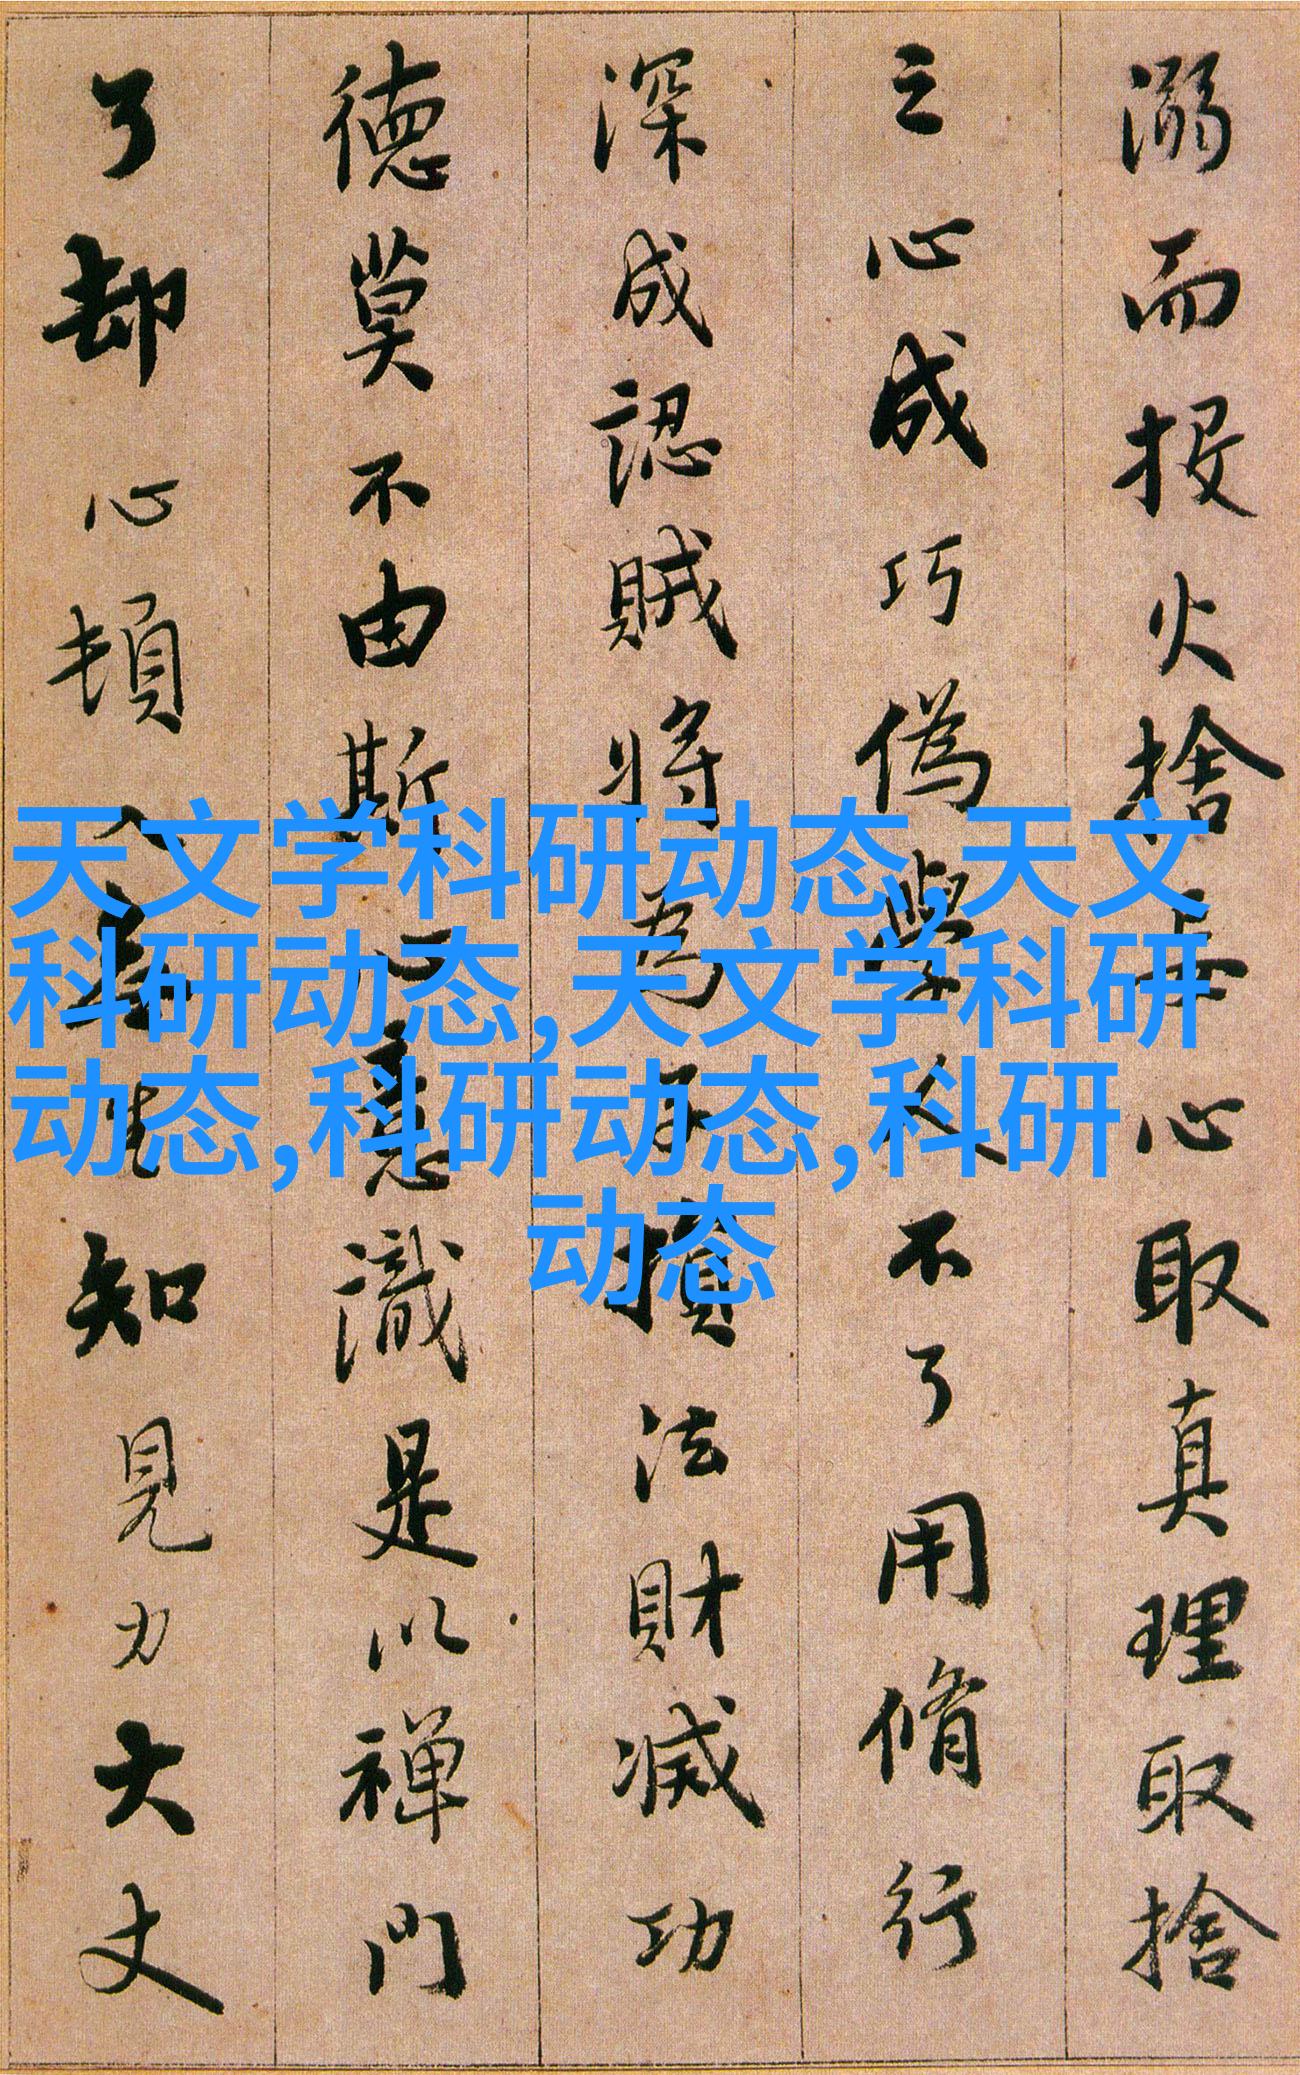 溺而投火捨妄心取真理取捨
之心成巧偽學人不了用脩行
深成認賊將為子損法財滅功
德莫不由斯心意識是以禪門
了却心頓入無生知見力大丈
天文学科研动态,天文
科研动态,天文学科研
动态,科研动态,科研
动态